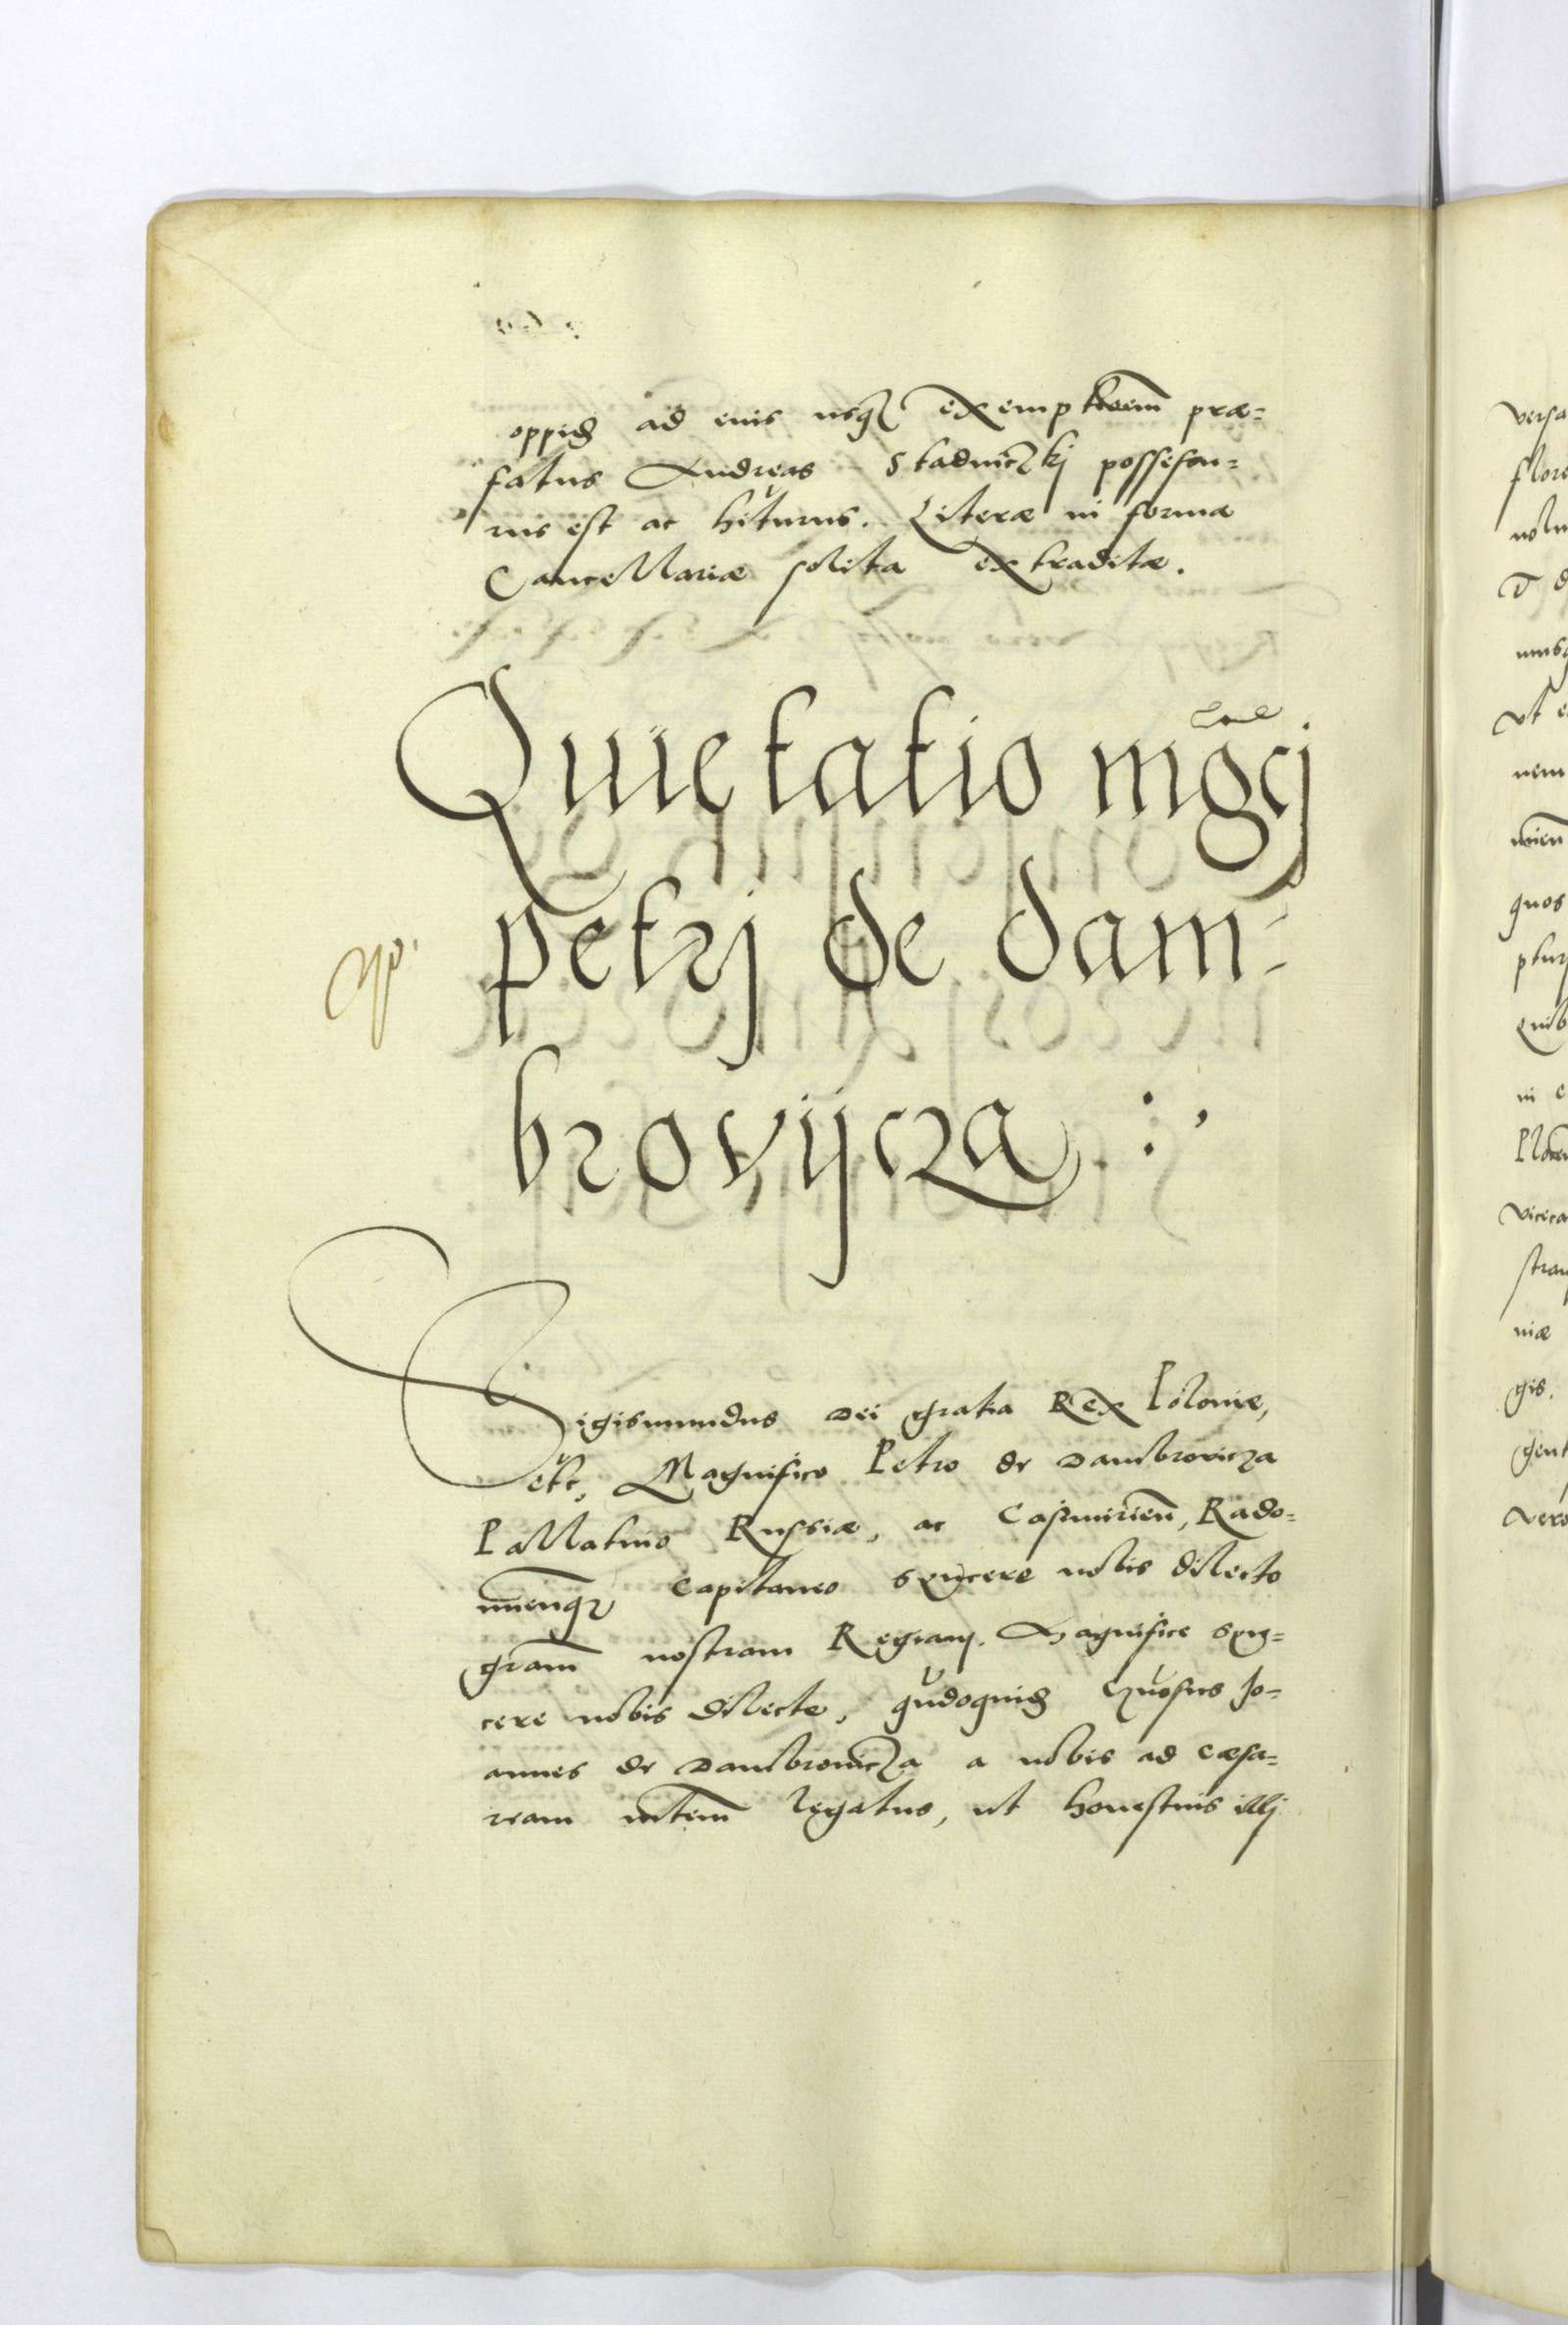 oppid ad eius usq exemptioem præ=
fatus Andreas Stadniczkj possessu=
rus est ac hiturus. Literæ in forma
Cancellariæ solita extraditæ.
Quietatio mgcj
petrj de dam=
brovijcza :,
Sigismundus Dei gratia Rex Poloniæ,
etc, Magnifico Petro de Dambrovicza
Pallatino Russiæ, ac Casimirien, Rado=
mienq Capitaneo syncere nobis dilecto
gram nostram Regiam. Magnifice syn=
cere nobis dilecte, qudoquid gnosus Jo=
annes de Dambrovicza a nobis ad cæsa=
ream mtem legatus, ut honestius illj
versa
flore
nem
quos
in
viceca
stran
niæ
gis.
gent
vero